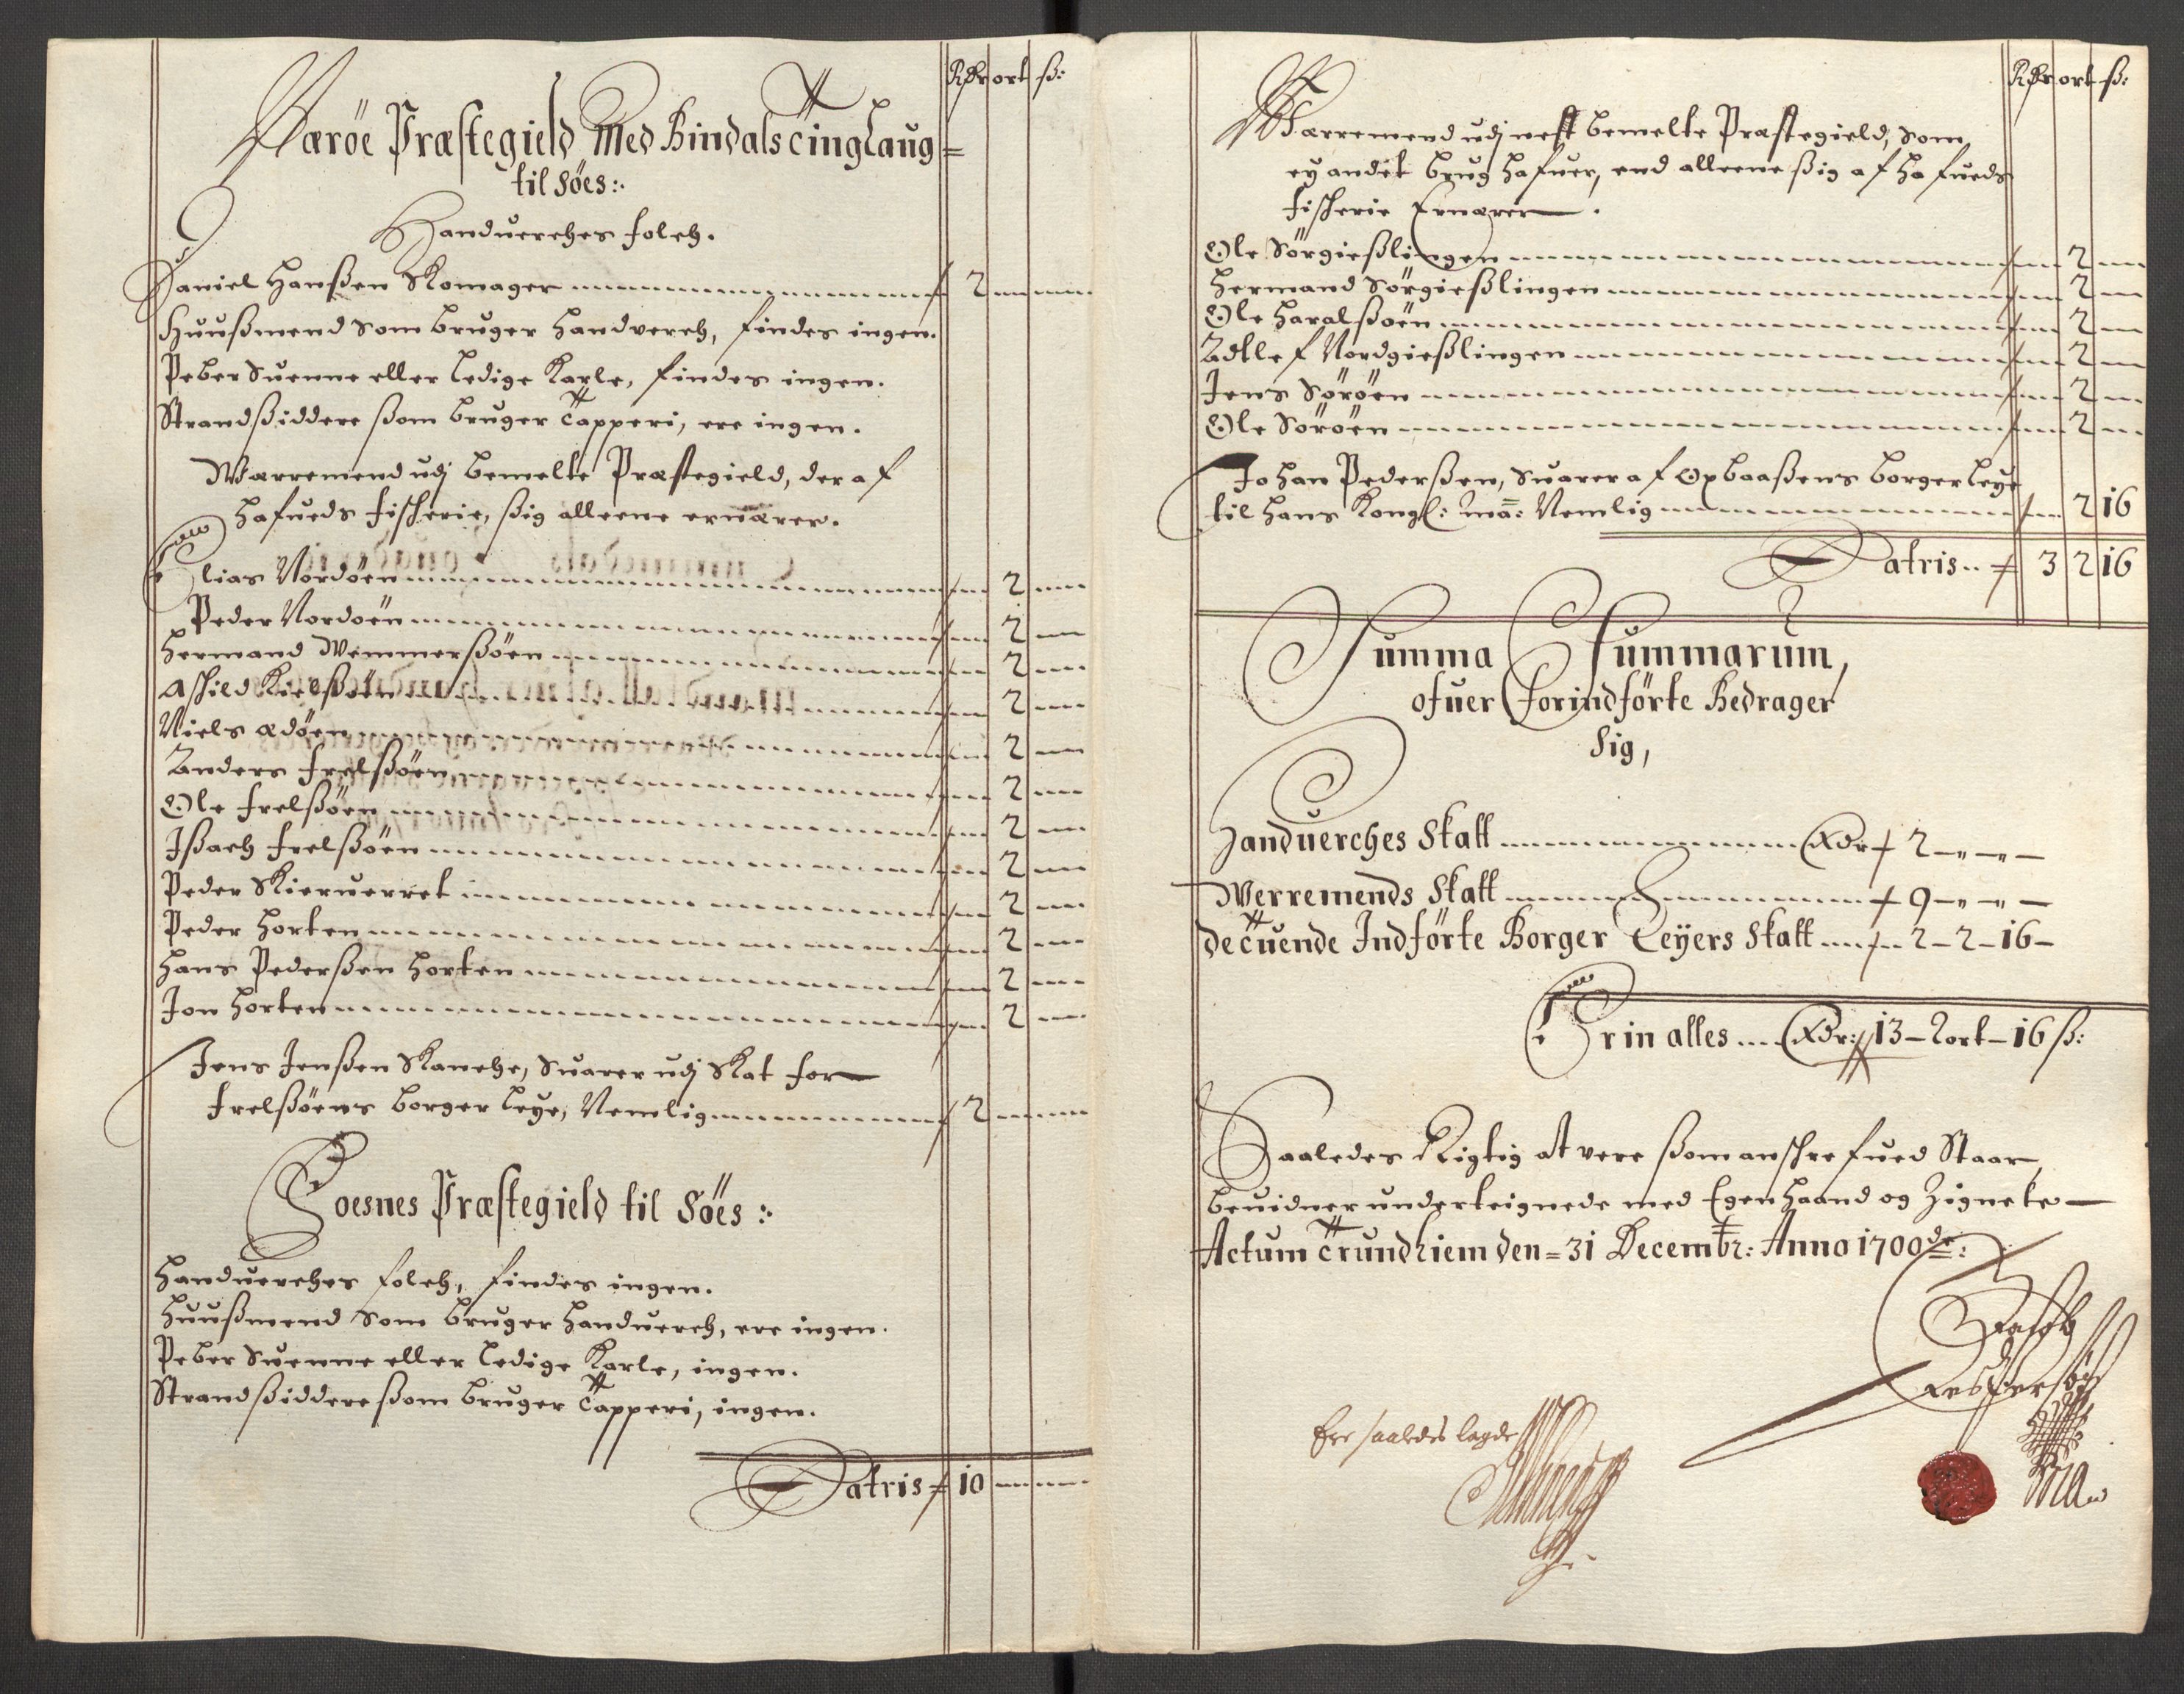 Rdr ort ß:
Nærøe Præstegield Med Bindals Tinglaug
til Søes:
Handuerches folch.
Daniel Hanßen Skomager 2
Huußmend som bruger Handverch, findes ingen.
Peber Suenne eller ledige Karle, findes ingen.
Strandßiddere ßom bruger Tapperi, ere ingen.
Werremend udj bemelte Præstegield, der af
hafueds fischerie, ßig alleene ernærer.
Elias Nordöen 2
Peder Nordöen 2
Hermand Wemmerßöen 2
Niels ædöen 2
Anders Frelßöen 2
Ole Frelßöen 2
Ißach Frelßöen 2
Peder Skieruerret 2
Peder Horten 2
Hans Pederßen Horten 2
Jon Horten 2
Jens Jenßen Skanche, Suarer udj Skat for
Frelßöens borger leye, Nemlig 2
Foesnes Præstegield til Söes:
Handuerches folch, findes ingen.
Huußmend Som bruger Handuerch, ere ingen.
Peber Suenne eller ledige Karle, ingen.
Strandßiddere ßom bruger Tapperi, ingen.
Latris 10
Rdr ort ß:
Werremend udj nest bemelte Præstegield, Som
ey andet brug hafuer, end alleene ßig af hafueds
fischerie Ernærer.
Ole Sörgießlingen 2
Hermand Sörgießlingen 2
Ole Haralßöen 2
Adtlef Nordgießlingen 2
Jens Söröen 2
Ole Söröen 2
Johan Pederßen, Suarer af Opbaaßens borger leye
til Hans Kongl: Ma: Nemlig 2 16
Latris 3 2 16
Summa Summarum,
ofuer forindförte Bedrager
Sig,
Handuerches Skatt Rdr 2
Werremends Skatt 9
De Tuende Indförte Borger Leÿers Skatt 2-2-16-
Er in alles Rdr: 13-2ort-16ß:
Saaledes Rigtig at vere ßom anschrefued Staar,
beuidner underteignede med Egen haand og Zignete
Actum Trundhiem den=31 Decembr: Anno 1700de:
Ere saaledes lagde